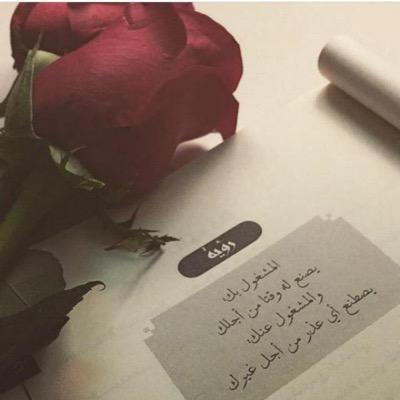 رؤية
المشغول بك،
يصنع له وقتا من أجلك
والمشغول عنك،
يصطنع أي عذر من أجل غيرك